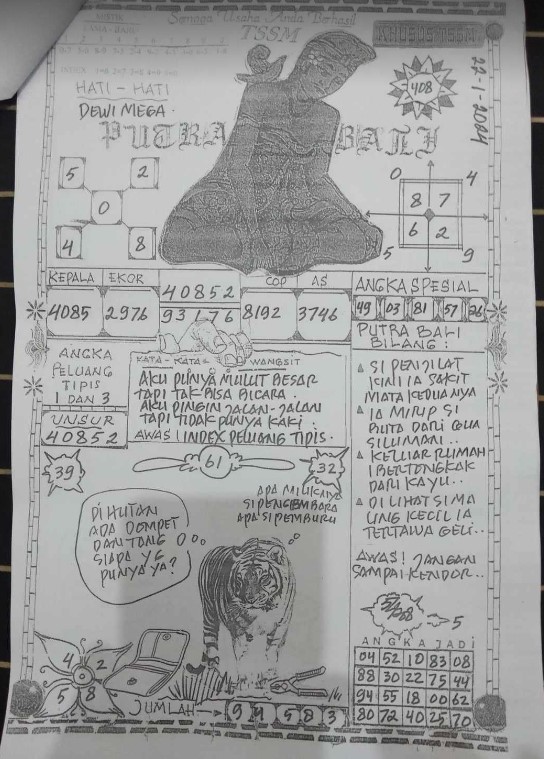 Semoga Usaha Anda Berhasil
TSSM
KHUSUS TSSM
HATI - HATI
DEWI MEGA.
408
22-1-2024
PUTRA BALI
5 2
0
4 8
0 4
8 7
6 2
5 9
KEPALA EKOR COP AS
40852
93176
4085 2976 8192 3746
ANGKA SPESIAL
49 03 81 57 26
ANGKA
PELUANG
TIPIS
1 DAN 3
UNSUR
40852
KATA - KATA = WANGSIT
AKU PUNYA MULUT BESAR
TAPI TAK BISA BICARA.
AKU PINGIN JALAN-JALAN
TAPI TIDAK PUNYA KAKI.
AWAS! INDEX PELUANG TIPIS.
PUTRA BALI
BILANG:
SI PENJILAT
KINI IA SAKIT
MATA KEDUANYA
IA MIRIP SI
BUTA DARI GUA
SILUMAN..
KELUAR RUMAH
IBERTONGKAK
DARI KAYU..
DILIHAT SIMA
UNG KECIL IA
TERTAWA GELI..
AWAS! JANGAN
SAMPAI KENDOR..
39
61
32
DI HUTAN
ADA DOMPET
DAN TANG
SIAPA YG
PUNYA YA?
APA MILIKNYA
SI PENGEMBARA
APA SI PEMBURU
5
ANGKA JADI
04 52 10 83 08
88 30 22 75 44
94 55 18 00 62
80 72 40 25 70
4 2
5 8
JUMLAH
9 4 5 8 3